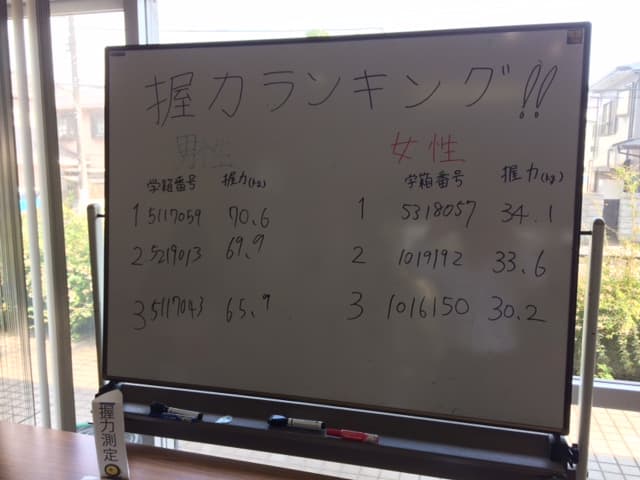 握力ランキング!!
男性
学箱番号 握力(kg)
1 5117059 70.6
2 5219013 69.9
3 5117043 65.9
女性
学箱番号 握力(kg)
1 5318057 34.1
2 1019192 33.6
3 1016150 30.2
握力測定